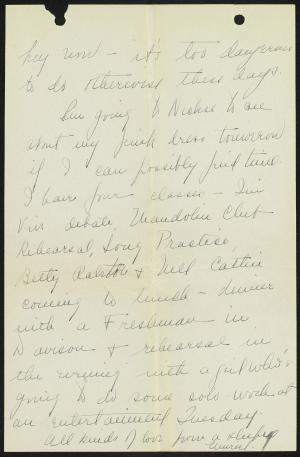 hey now - it's too dangerous
to do otherwise these days.
I'm going to to see
about my pink dress tomorrow
if I can possibly find time.
I have four classes - Jim
Vis debate, Mandolin Club
Rehearsal, Song Practise,
Betty Ralston & Nell Cattin
coming to lunch - dinner
with a Freshman in
Davison & rehearsal in
the evening with a girl who's
going to do some solo work at
an entertainment Tuesday.
All kinds of love from a sleepy